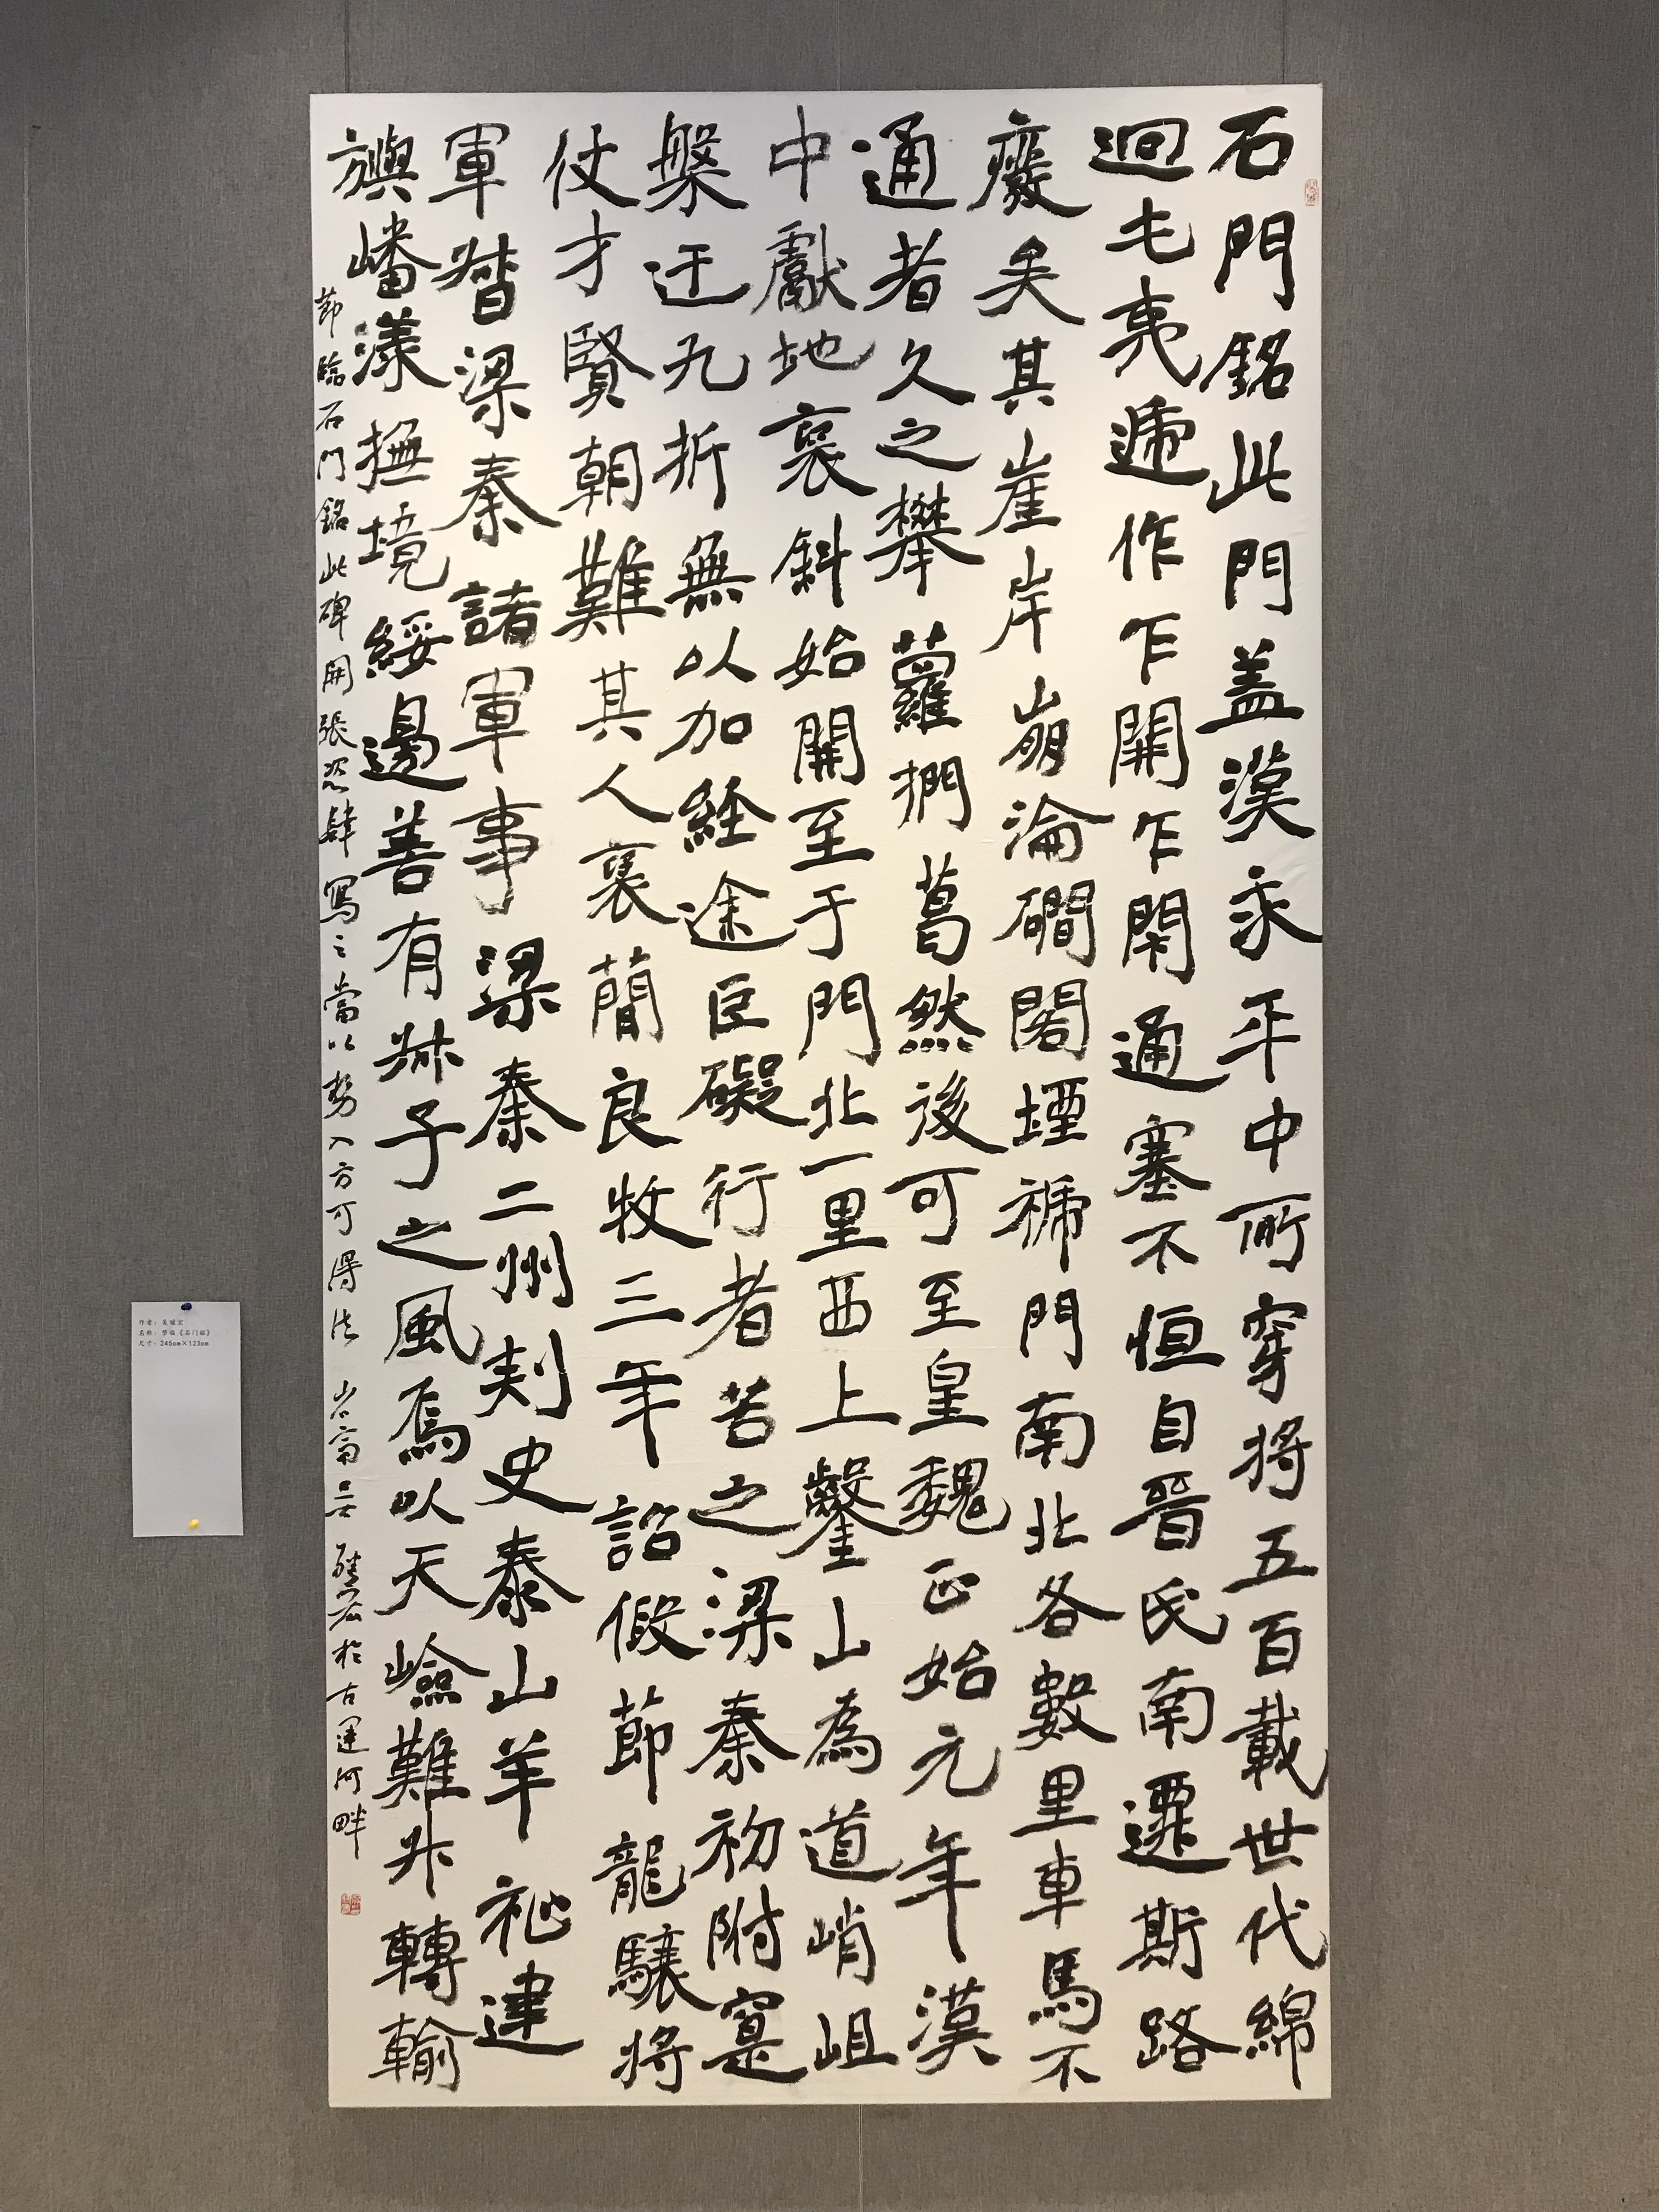 石門銘此門盖漢永平中所穿将五百載世代綿
迴屯夷遞作乍開乍閉通塞不恒自晉氏南遷斯路
廢矣其崖岸崩淪磵閣堙褫門南北各數里車馬不
通者久之攀蘿捫葛然後可至皇魏正始元年漢
中獻地褒斜始開至于門北一里西上鑿山為道峭岨
槃迂九折無以加經途巨礙行者苦之梁秦初附寔
仗才賢朝難其人褒簡良牧三年詔假節龍驤将
軍督梁秦諸軍事梁秦二州刾史泰山羊祉建
旟嶓漾撫境綏邊善有叔子之風焉以天嶮難升轉輸
節臨石門銘此碑開張恣肆寫之當以勢入方可得法
於古運河畔
作者：吴
名称：节临《石门铭》
尺寸：245cm×123cm